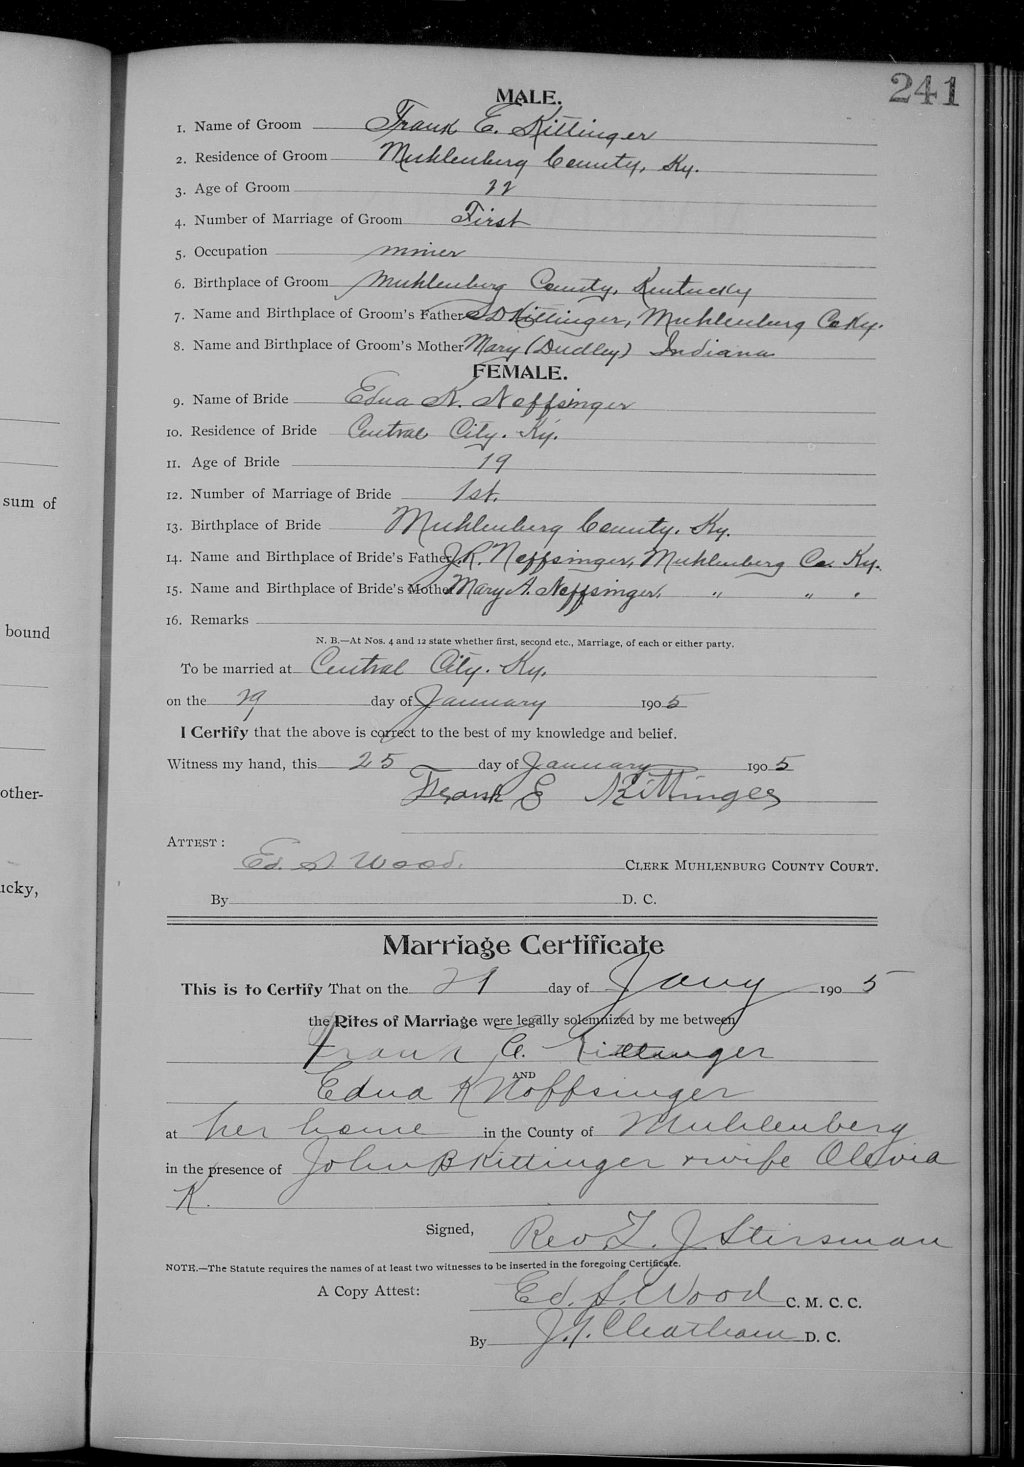 241
MALE.
1. Name of Groom Frank E. Kittinger
2. Residence of Groom Muhlenberg County, Ky.
3. Age of Groom 22
4. Number of Marriage of Groom First
5. Occupation miner
6. Birthplace of Groom Muhlenberg County, Kentucky
7. Name and Birthplace of Groom's Father Kittinger, Muhlenberg Co Ky.
8. Name and Birthplace of Groom's Mother Mary (Dudley) Indiana
FEMALE.
9. Name of Bride Edna K. Noffsinger
10. Residence of Bride Central City. Ky.
11. Age of Bride 19
12. Number of Marriage of Bride 1st.
13. Birthplace of Bride Muhlenberg County. Ky.
14. Name and Birthplace of Bride's Father J.R. Noffsinger, Muhlenberg Co. Ky.
15. Name and Birthplace of Bride's Mother Mary A. Noffsinger, " " "
16. Remarks
N. B.—At Nos. 4 and 12 state whether first, second etc., Marriage, of each or either party.
To be married at Central City. Ky.
on the day of January 1905
I Certify that the above is correct to the best of my knowledge and belief.
Witness my hand, this 25 day of January 1905
Frank E Kittinger
ATTEST:
Ed. S. Wood. CLERK MUHLENBURG COUNTY COURT.
By D. C.
Marriage Certificate
This is to Certify That on the day of Jany 1905
the Rites of Marriage were legally solemnized by me between
Frank E. Kittinger
AND
Edna K Noffsinger
at her home in the County of Muhlenberg
in the presence of John B Kittinger & wife Olevia
K.
Signed,
Rev. J Stirsman
NOTE.—The Statute requires the names of at least two witnesses to be inserted in the foregoing Certificate.
A Copy Attest: Ed. S. Wood C. M. C. C.
By Cheatham D. C.
sum of
bound
other-
ucky,